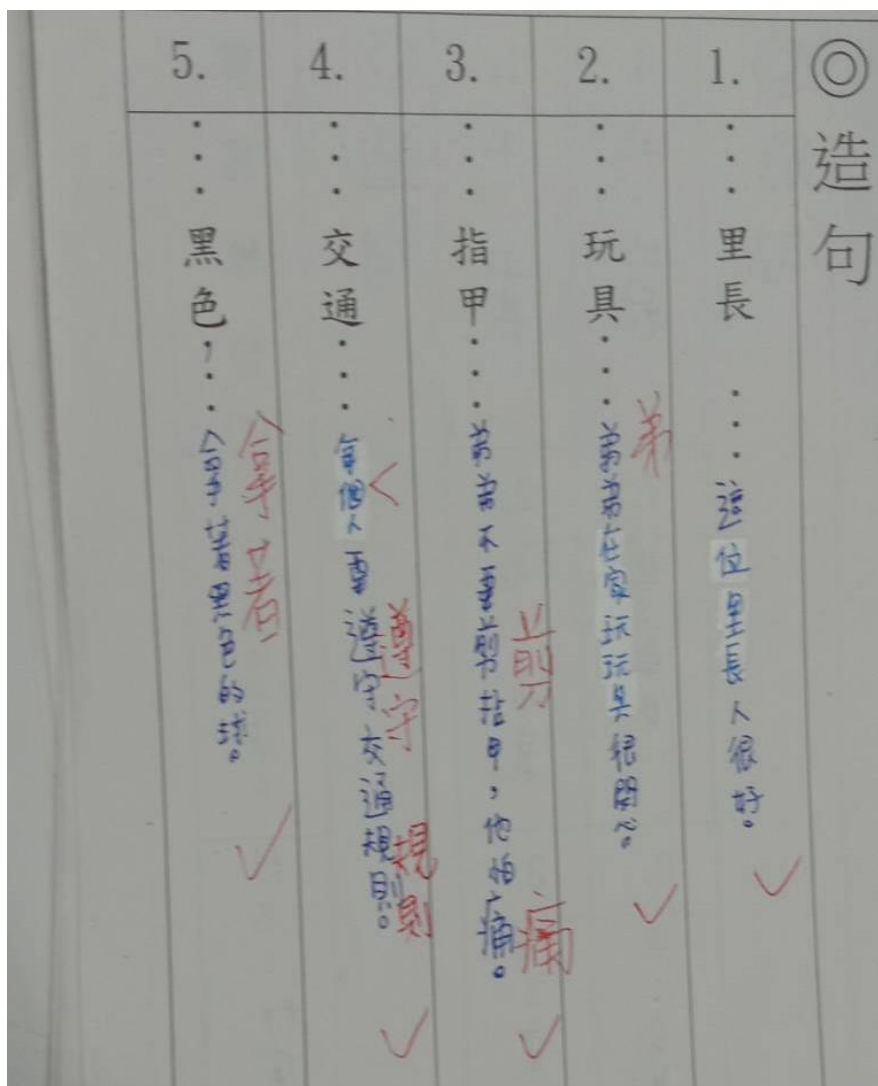 ◎造句
1.···里長···這位里長人很好。
2.···玩具···弟弟在家玩玩具很開心。
弟
3.···指甲···弟弟不要剪指甲，他怕痛。
剪
痛
4.···交通···每個人要遵守交通規則。
遵守
規則
5.···黑色···拿著黑色的球。
拿著